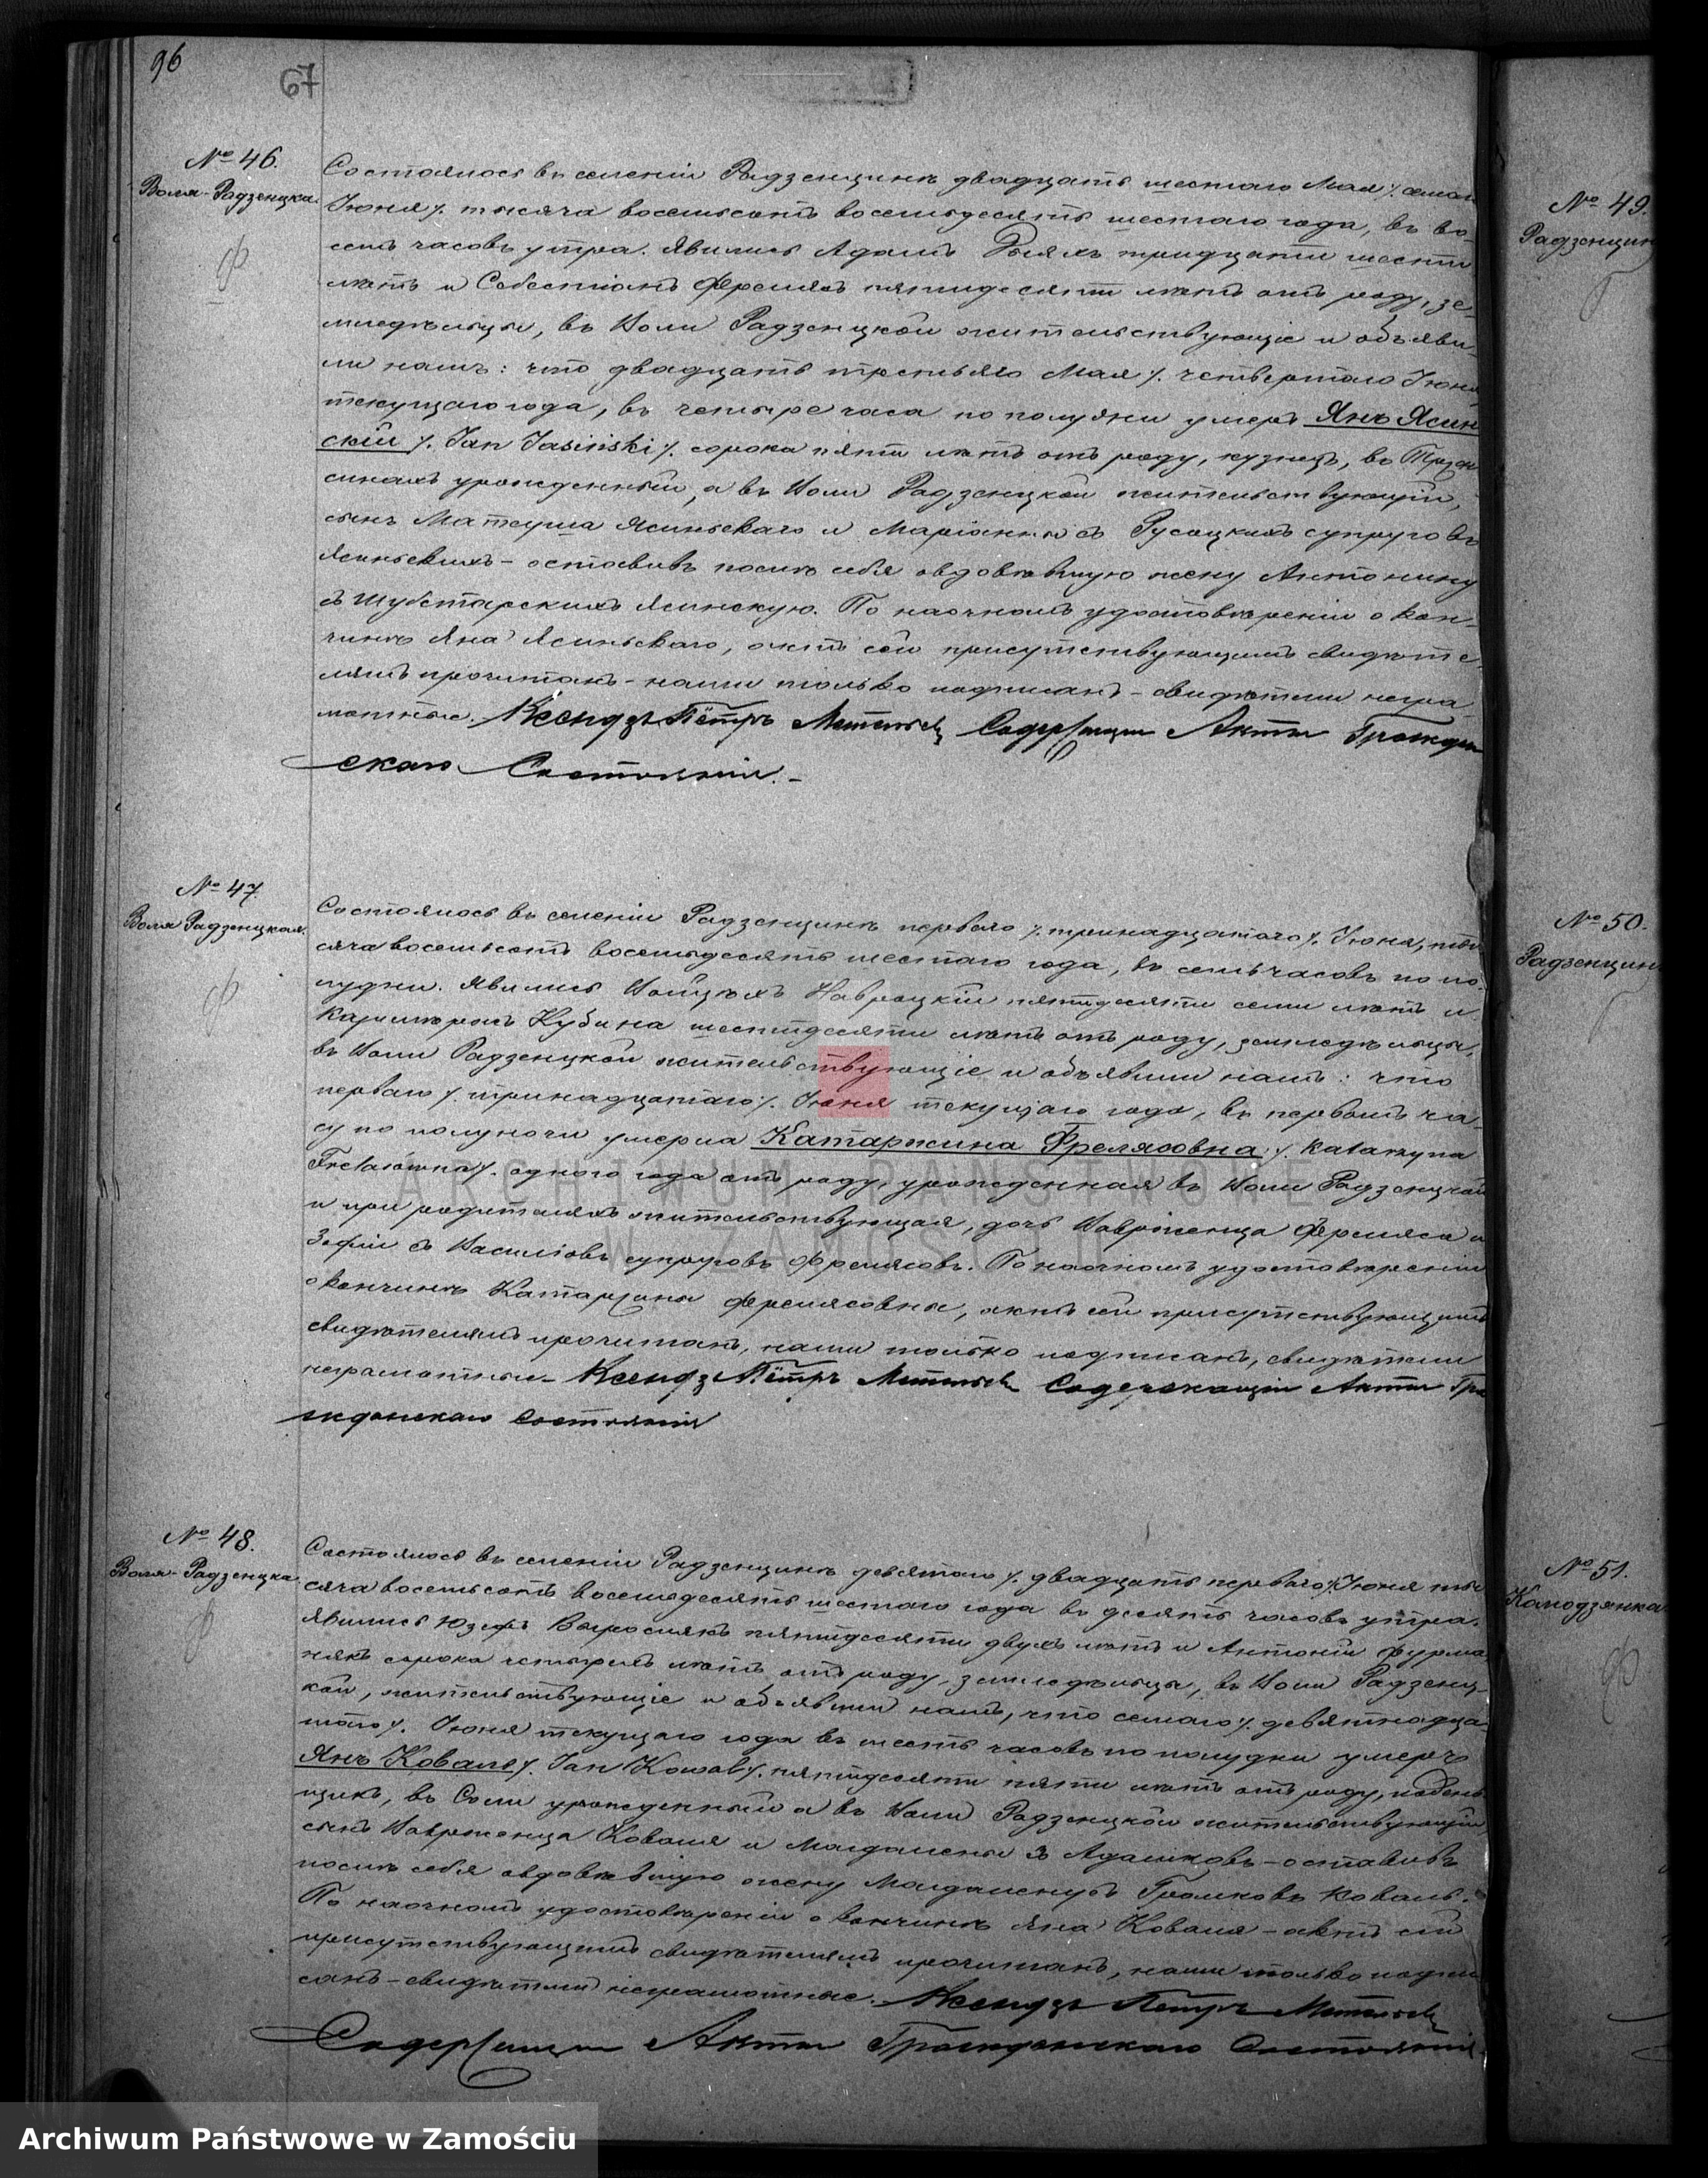 96
67
№ 46.
Воля-Радзенцка.
Состоялось въ селеніи Радзенцинѣ двадцать шестаго Мая /: седьмаго
Іюня /: тысяча восемьсотъ восемьдесятъ шестаго года, въ во-
семь часовъ утра. Явились Адамъ тридцати шести
лѣтъ и Себестіанъ Фреляхъ пятидесяти лѣтъ отъ роду, зе-
мледѣльцы, въ Воли Радзенцкой жительствующіе и объяви-
ли намъ: что двадцать третьяго Мая /: четвертаго Іюня
текущаго года, въ четыре часа по полудни умеръ Янъ Ясин
скій /: Jan Jasiński /: сорока пяти лѣтъ отъ роду, кузнецъ, въ
урожденный, а въ Воли Радзенцкой жительствующій,
сынъ Матеуша Ясиньскаго и Маріанны съ Русацкихъ супруговъ
Ясиньскихъ - оставивъ послѣ себя овдовѣвшую жену Антонину
съ Ясинскую. По наочномъ удостовѣреніи о кон-
чинѣ Яна Ясиньскаго, актъ сей присутствующимъ свидѣте-
лямъ прочитанъ - нами только подписанъ - свидѣтели негра-
мотные. Ксендзъ Пётръ Содержащій Акты Граждан
скаго Состоянія. -
№ 47.
Воля Радзенцкая.
Состоялось въ селеніи Радзенцинѣ перваго /: тринадцатаго /: Іюня, ты
сяча восемьсотъ восемьдесятъ шестаго года, въ семь часовъ по по-
лудни. Явились Войцѣхъ Навроцкій пятидесяти семи лѣтъ и
Казимѣръ Кубина шестидесяти лѣтъ отъ роду, земледѣльцы,
въ Воли Радзенцкой жительствующіе и объявили намъ: что
перваго /: тринадцатаго /: Іюня текущаго года, въ первомъ ча-
су по полуночи умерла Катаржина Фрелясовна /: Katarzyna
Frelasówna /: одного года отъ роду, урожденная въ Воли Радзенцкой
и при родителяхъ жительствующая, дочь Ваврженца Фреляса и
Зофіи съ Василювъ супруговъ Фрелясовъ. По наочномъ удостовѣреніи
о кончинѣ Катаржины Фрелясовны, актъ сей присутствующимъ
свидѣтелямъ прочитанъ, нами только подписанъ, свидѣтели
неграмотные - Ксендзъ Пётръ Содержащій Акты Гра
жданскаго Состоянія
№ 48.
Воля-Радзенцка.
Состоялось въ селеніи Радзенцинѣ девятаго /: двадцать перваго /: Іюня ты
сяча восемьсотъ восемьдесятъ шестаго года въ десять часовъ утра.
Явились Юзефъ Выросликъ пятидесяти двухъ лѣтъ и Антоній Фурма
някъ сорока четырехъ лѣтъ отъ роду, земледѣльцы, въ Воли Радзенц-
кой, жительствующіе и объявили намъ, что седьмаго /: девятнадца
таго /: Іюня текущаго года въ шесть часовъ по полудни умеръ
Янъ Коваль /: Jan Kowal /: пятидесяти пяти лѣтъ отъ роду, поденъ
щикъ, въ Соли урожденный а въ Воли Радзенцкой жительствующій,
сынъ Вавржинца Коваля и Магдалены зъ Адамковъ - оставивъ
послѣ себя овдовѣвшую жену Магдалену съ Громковъ Коваль.
По наочномъ удостовѣреніи о кончинѣ Яна Коваля - актъ сей
присутствующимъ свидѣтелямъ прочитанъ, нами только подпи
санъ - свидѣтели неграмотные. Ксендзъ Пётръ
Содержащій Акты Гражданскаго Состоянія
№ 49.
Радзенцин
№ 50.
Радзенцин
№ 51.
Колодзянка
ARCHIWUM PAŃSTWOWE
W ZAMOŚCIU
Archiwum Państwowe w Zamościu